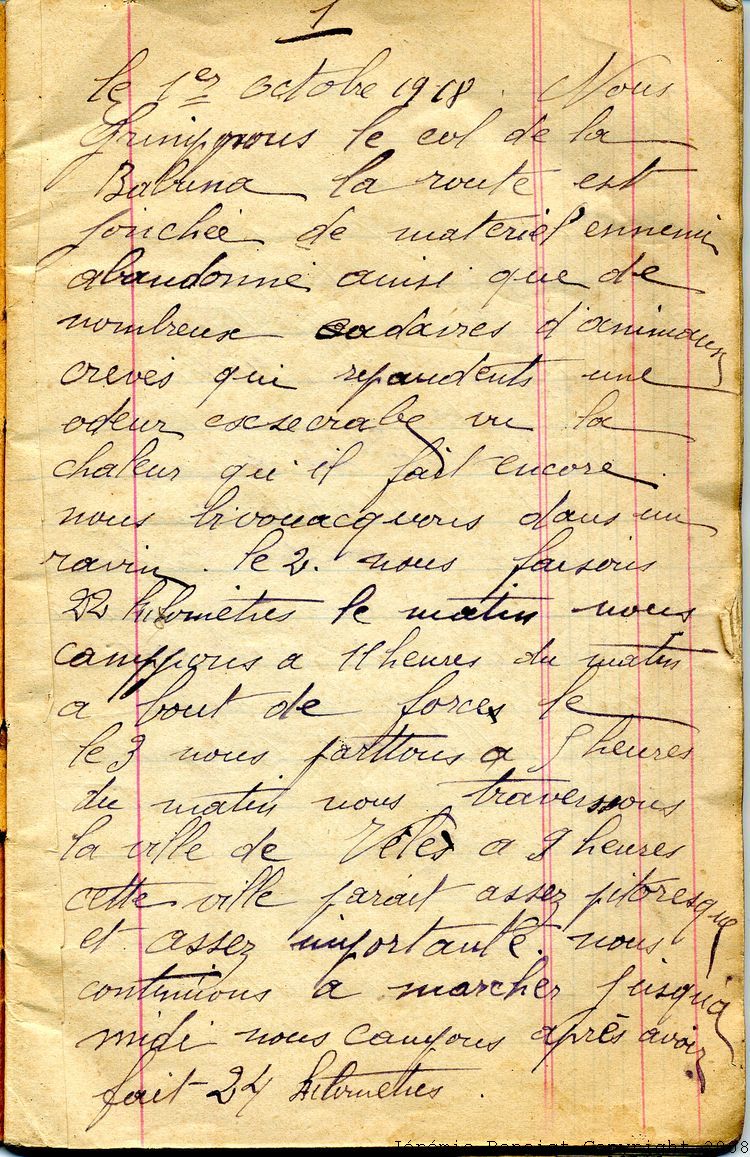 1
le 1er octobre 1918. Nous
Grimpons le col de la
Babuna la route est
jonchée de materiel ennemi
abandonné ainsi que de
nombreux cadavres d'animaux
crevés qui repandents une
odeur escsecrable vu la
chaleur qu'il fait encore.
nous bivouacquons dans un
ravin. le 2. nous faisons
22 kilomètres le matin nous
campons a 11 heures du matin
a bout de forces le
le 3 nous parttons a 5 heures
du matin nous traversons
la ville de Vélès a 9 heures
cette ville parait assez pitoresque
et assez importante. nous
continuons a marcher jusqu'a
midi nous campons après avoir
fait 24 kilomètres.
Jérémie Benoist Copyright 2008